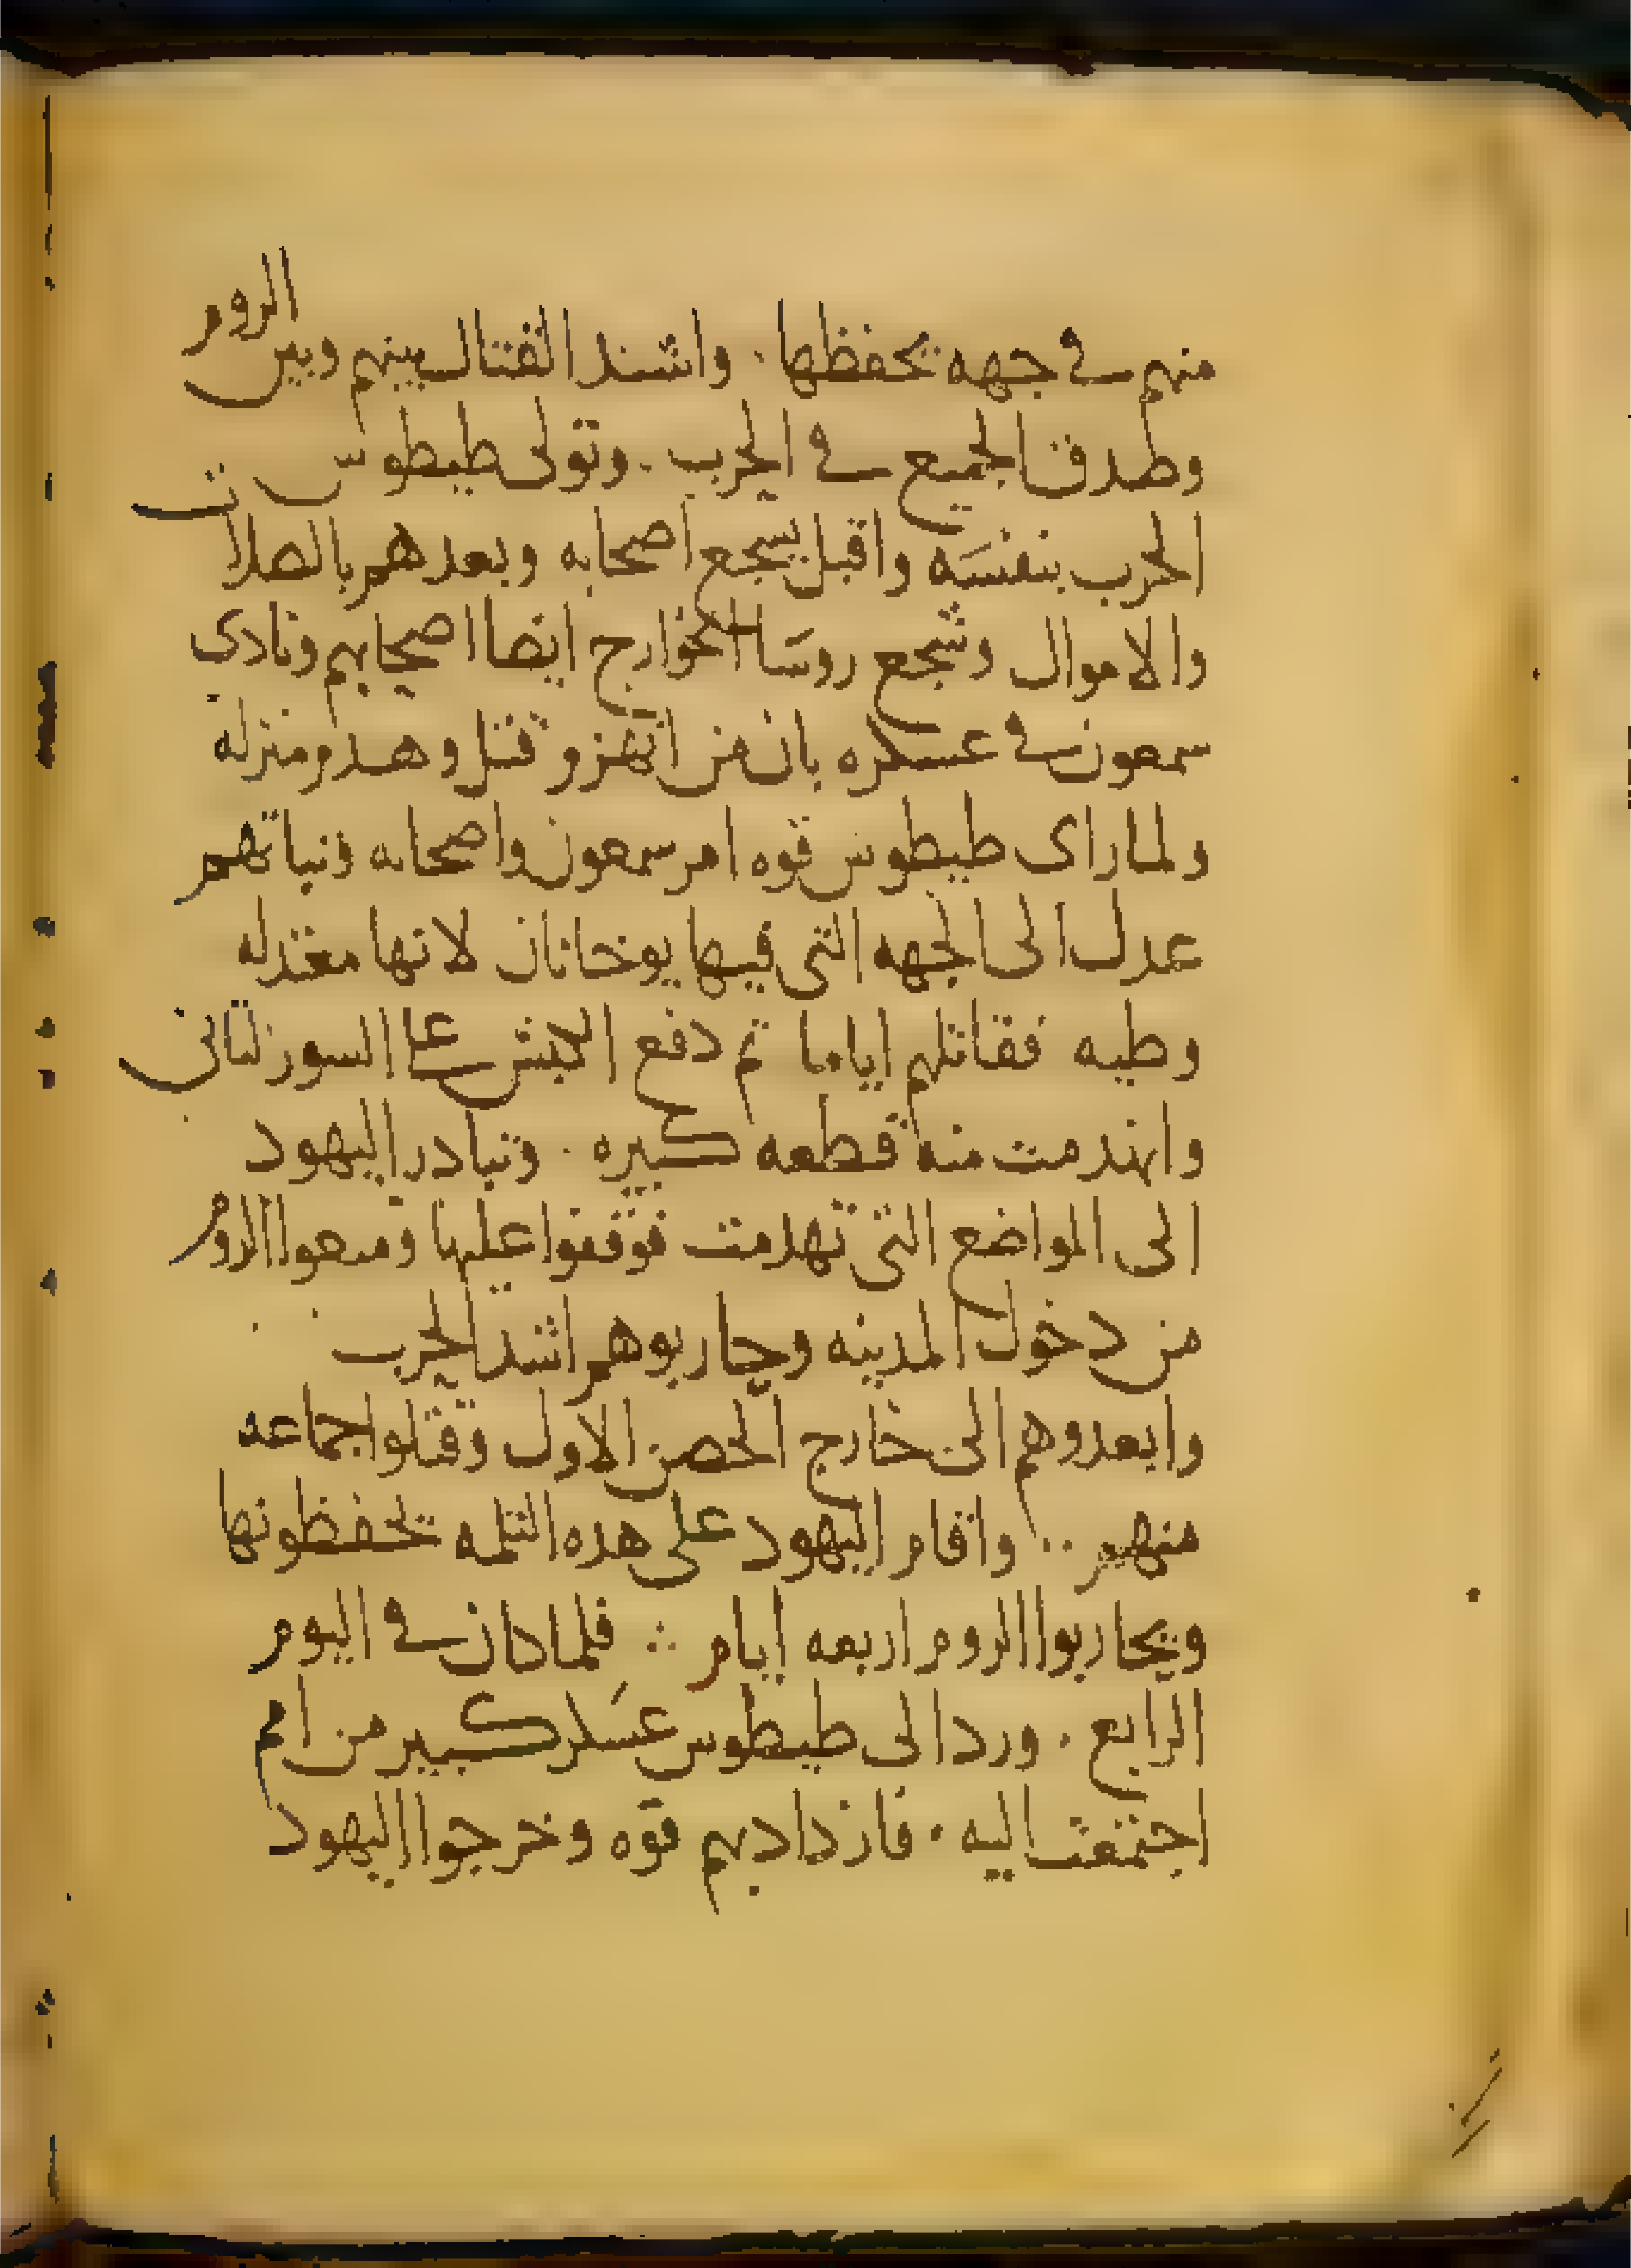 منهم في جهه يحفظها . واشتد القتال بينهم وبين الروم
وصدق الجميع في الحرب . وتولى طيطوس
الحرب بنفسه واقبل يشجع اصحابه وبعدهم بالصلات
والاموال وشجع روسا الخوارج ايضا اصحابهم ونادى
سمعون في عسكره بان من انهزم قتل وهدم منزله
ولما راى طيطوس قوه امر سمعون واصحابه وثباتهم
عدل الى الجهه التي فيها يوحانان لانها معتدله
وطيه فقاتلهم اياما تم دفع الكبش على السور الثاني
وانهدمت منه قطعه كبيره . وتبادر اليهود
الى المواضع التي تهدمت فوقفوا عليها ومنعوا الروم
من دخول المدينه وحاربوهم اشد الحرب
وابعدوهم الى خارج الحصن الاول وقتلوا جماعه
منهم .. واقام اليهود على هده الثلمه يحفظونها
ويحاربوا الروم اربعه ايام ∴ فلما كان في اليوم
الرابع . ورد الى طيطوس عسكر كبير من امم
اجتمعت اليه . فازداد بهم قوه وخرجوا اليهود